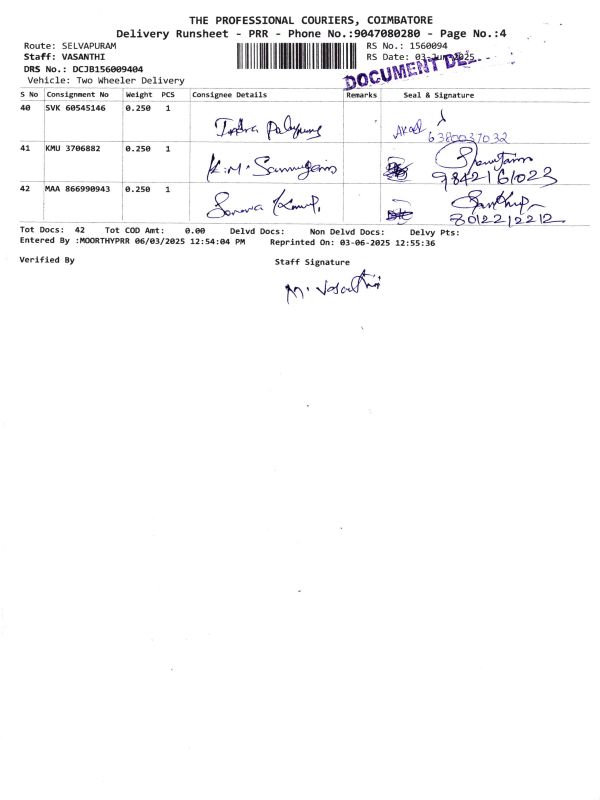 THE PROFESSIONAL COURIERS, COIMBATORE
Delivery Runsheet - PRR - Phone No.:9047080280 - Page No.:4
Route: SELVAPURAM RS No.: 1560094
Staff: VASANTHI RS Date: 03-Jun-2025
DRS No.: DCJB156009404
DOCUMENT DEL
Vehicle: Two Wheeler Delivery
S No Consignment No Weight PCS Consignee Details Remarks Seal & Signature
40 SVK 60545146 0.250 1
6380037032
41 KMU 3706882 0.250 1 K.M.
9842161023
42 MAA 866990943 0.250 1
8012212212
Tot Docs: 42 Tot COD Amt: 0.00 Delvd Docs: Non Delvd Docs: Delvy Pts:
Entered By :MOORTHYPRR 06/03/2025 12:54:04 PM Reprinted On: 03-06-2025 12:55:36
Verified By Staff Signature
M. Vasanthi